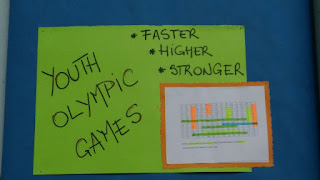 YOUTH
OLYMPIC
GAMES
* FASTER
* HIGHER
* STRONGER